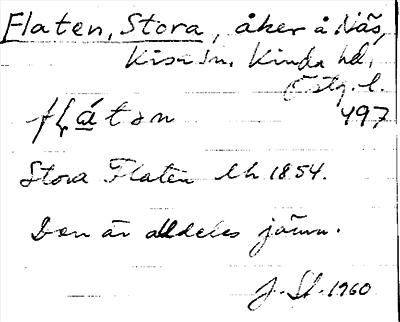 Flaten, Stora, åker å Näs,
Kisa sn. Kinda hd,
Östg. l.
497
Stora Flaten lh. 1854.
Den är alldeles jämn.
J. Sl. 1960